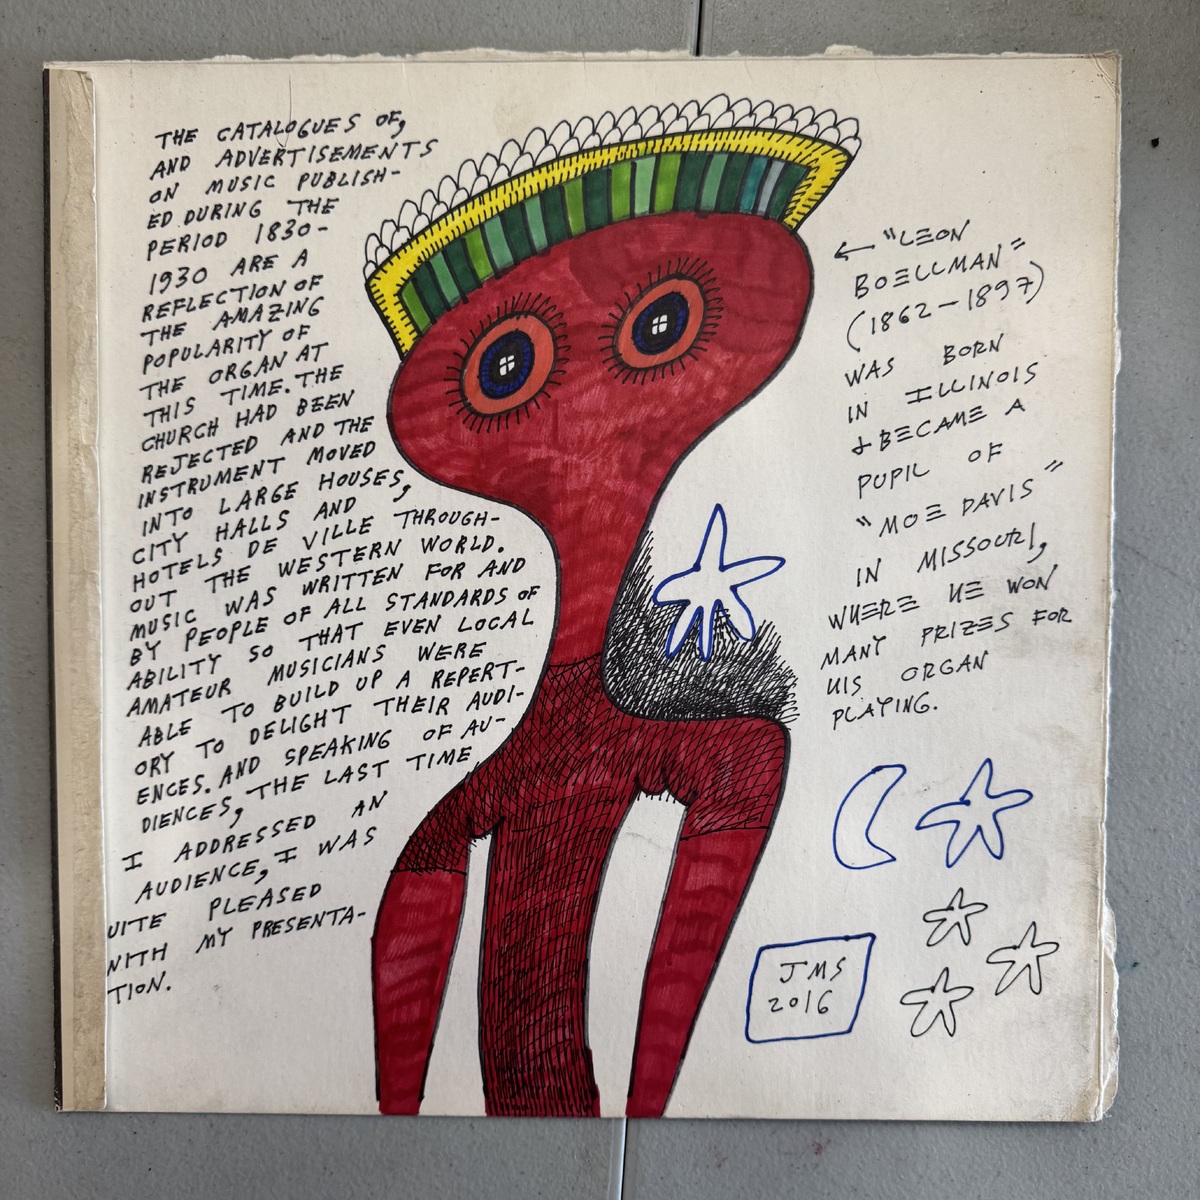 THE CATALOGUES OF,
AND ADVERTISEMENTS
ON MUSIC PUBLISH-
ED DURING THE
PERIOD 1830-
1930 ARE A
REFLECTION OF
THE AMAZING
POPULARITY OF
THE ORGAN AT
THIS TIME. THE
CHURCH HAD BEEN
REJECTED AND THE
INSTRUMENT MOVED
INTO LARGE HOUSES,
CITY HALLS AND,
HOTELS DE VILLE THROUGH-
OUT THE WESTERN WORLD.
MUSIC WAS WRITTEN FOR AND
BY PEOPLE OF ALL STANDARDS OF
ABILITY SO THAT EVEN LOCAL
AMATEUR MUSICIANS WERE
ABLE TO BUILD UP A REPERT-
ORY TO DELIGHT THEIR AUDI-
ENCES. AND SPEAKING OF AU-
DIENCES, THE LAST TIME
I ADDRESSED AN
AUDIENCE, I WAS
UITE PLEASED
WITH MY PRESENTA-
TION.
← "LEON
BOELLMAN"
(1862-1897)
WAS BORN
IN ILLINOIS
& BECAME A
PUPIL OF
"MOE DAVIS"
IN MISSOURI,
WHERE HE WON
MANY PRIZES FOR
HIS ORGAN
PLAYING.
JMS
2016